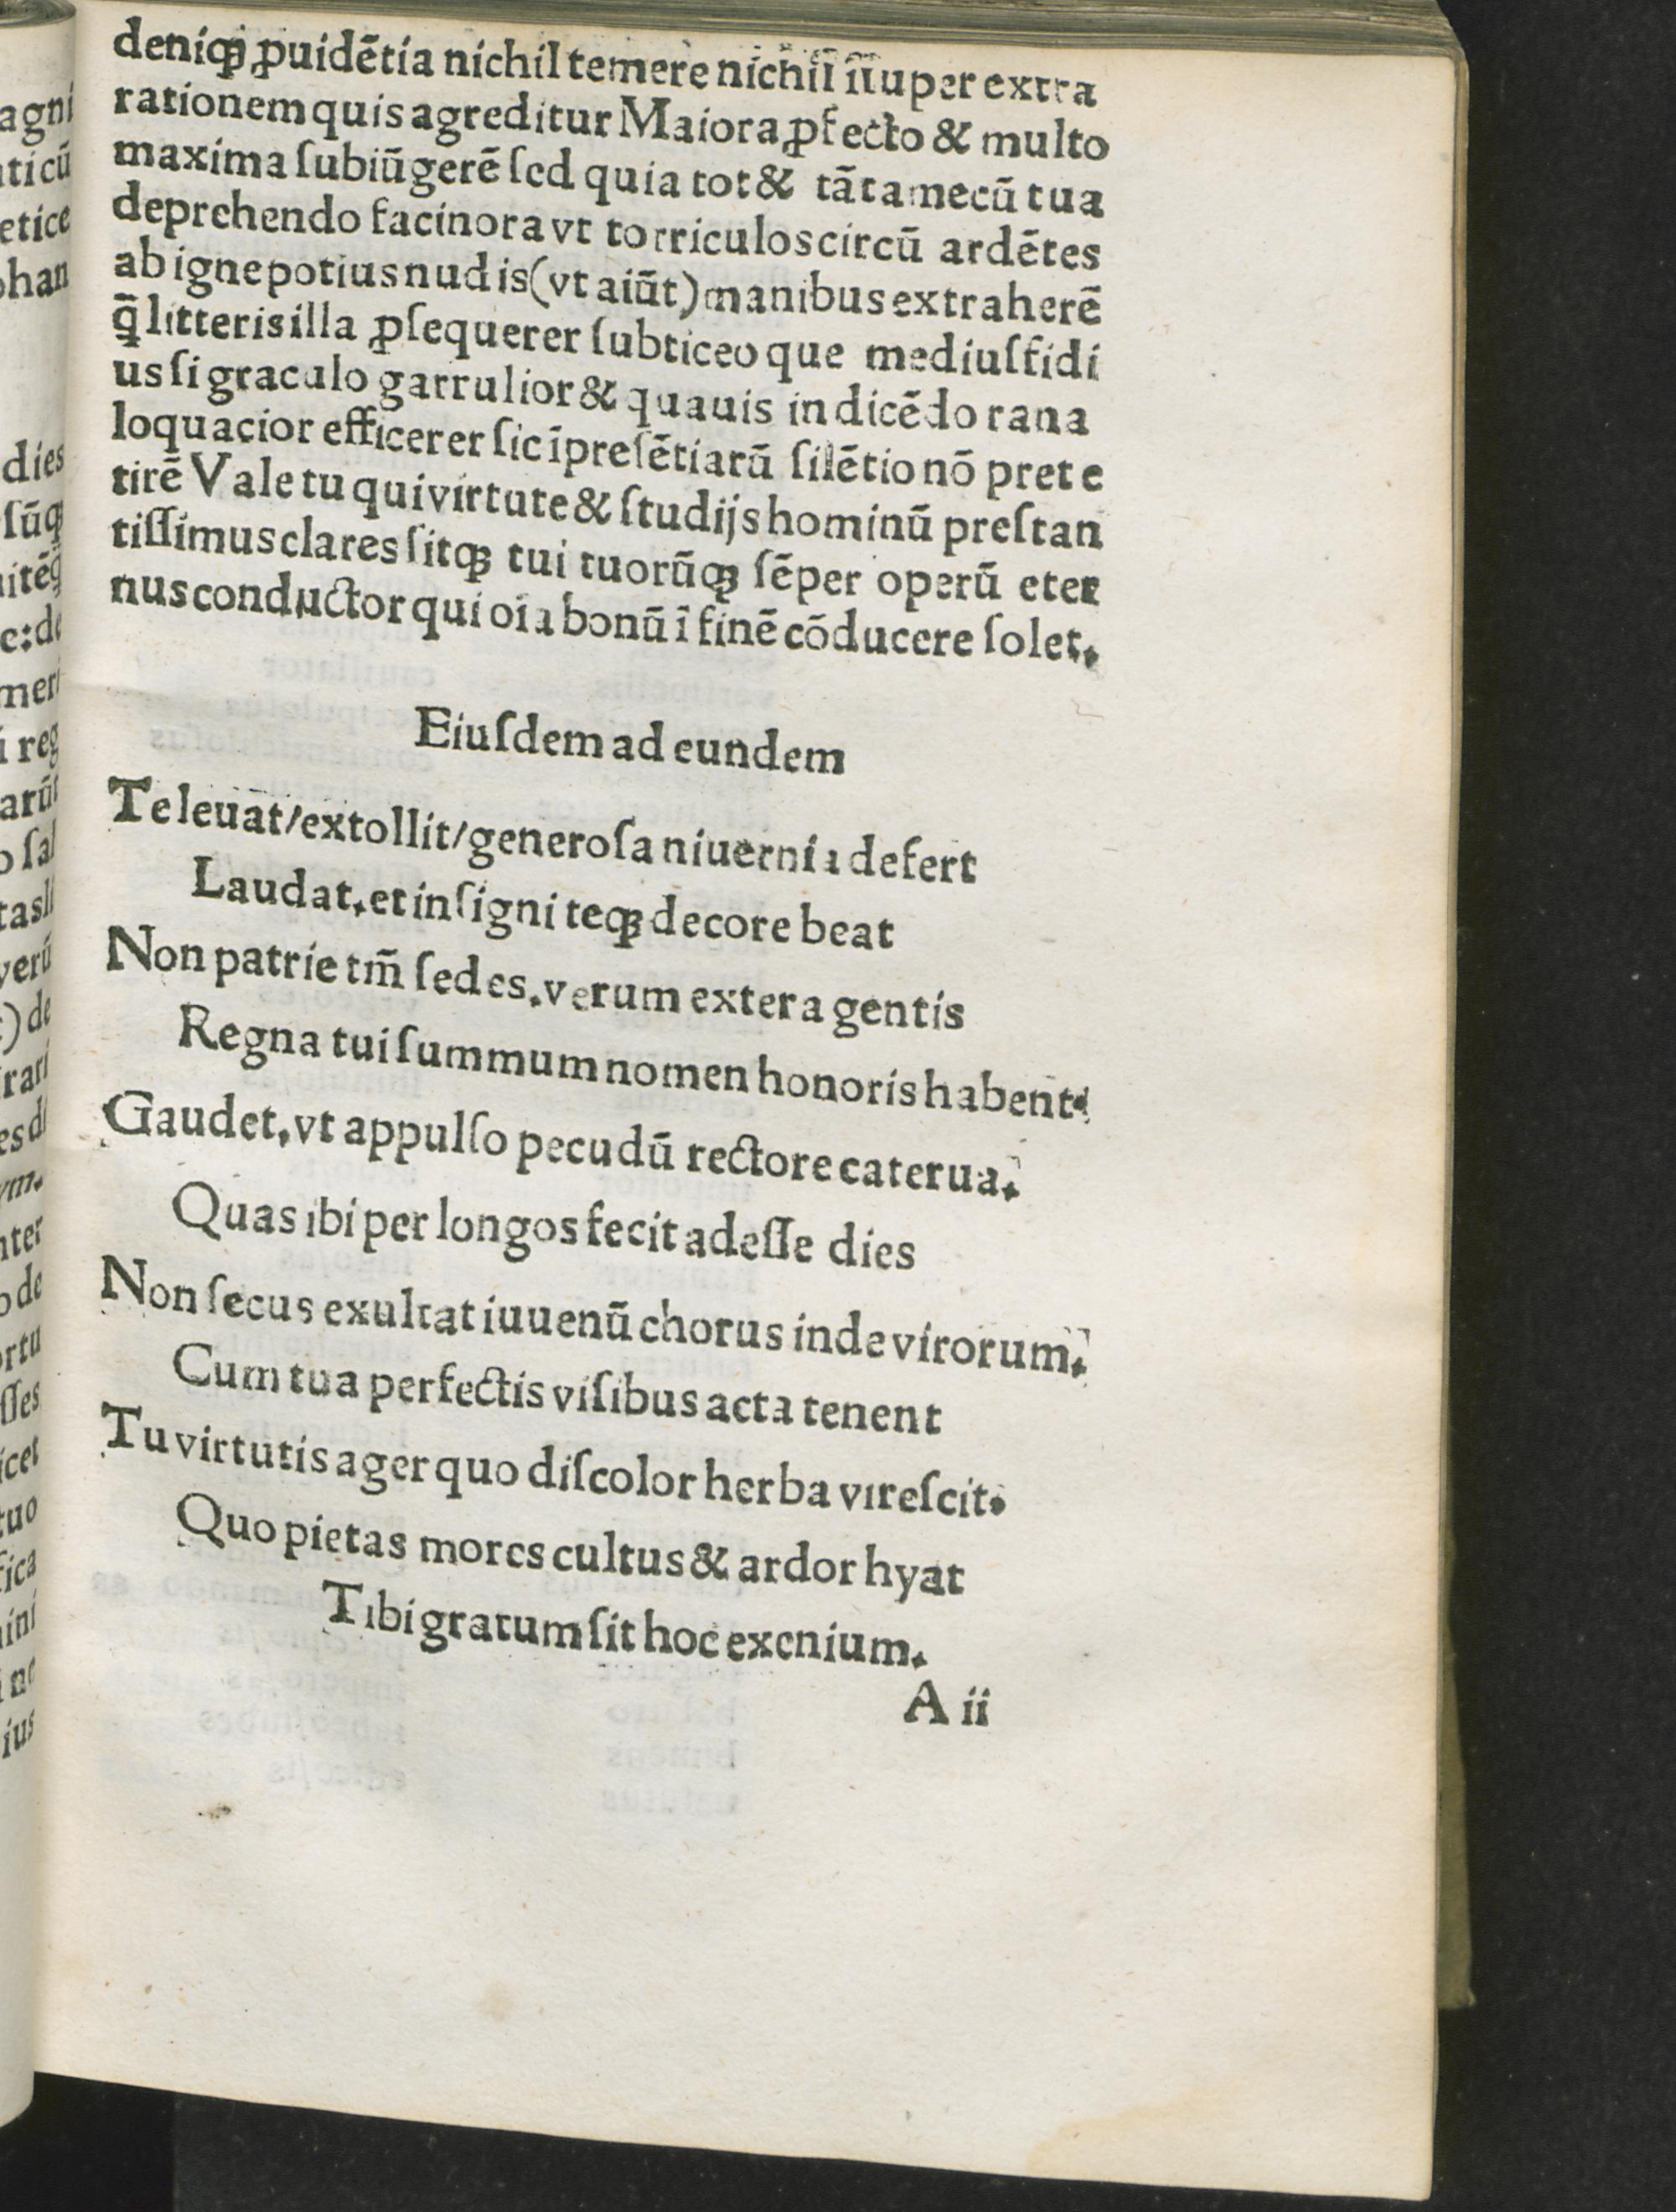 deniqꝫ ꝓuidētia nichil temere nichil īſuper extra
rationem quis agreditur Maiora ꝓfecto & multo
maxima ſubiūgerē ſed quia tot & tāta mecū tua
deprehendo facinora vt torriculos circū ardētes
ab igne potius nudis (vt aiūt) manibus extraherē
q̄ litteris illa ꝓſequerer ſubticeo que mediuſfidi
us ſi graculo garrulior & quauis in dicēdo rana
loquacior efficerer ſic īpreſētiarū ſilētio nō prete
tirē Vale tu qui virtute & ſtudijs hominū preſtan
tiſſimus clares ſitqꝫ tui tuorūqꝫ ſēper operū eter
nus conductor qui oīa bonū ī finē cōducere ſolet.
Eiuſdem ad eundem
Te leuat/extollit/generoſa niuernia defert
Laudat. et inſigni teqꝫ decore beat
Non patrie tm̄ ſedes. verum extera gentis
Regna tui ſummum nomen honoris habent.
Gaudet. vt appulſo pecudū rectore caterua.
Qua sibi per longos fecit adeſſe dies
Non ſecus exultat iuuenū chorus inde virorum.
Cum tua perfectis viſibus acta tenent
Tu virtutis ager quo diſcolor herba vireſcit.
Quo pietas mores cultus & ardor hyat
Tibi gratum ſit hoc exenium.
A ii